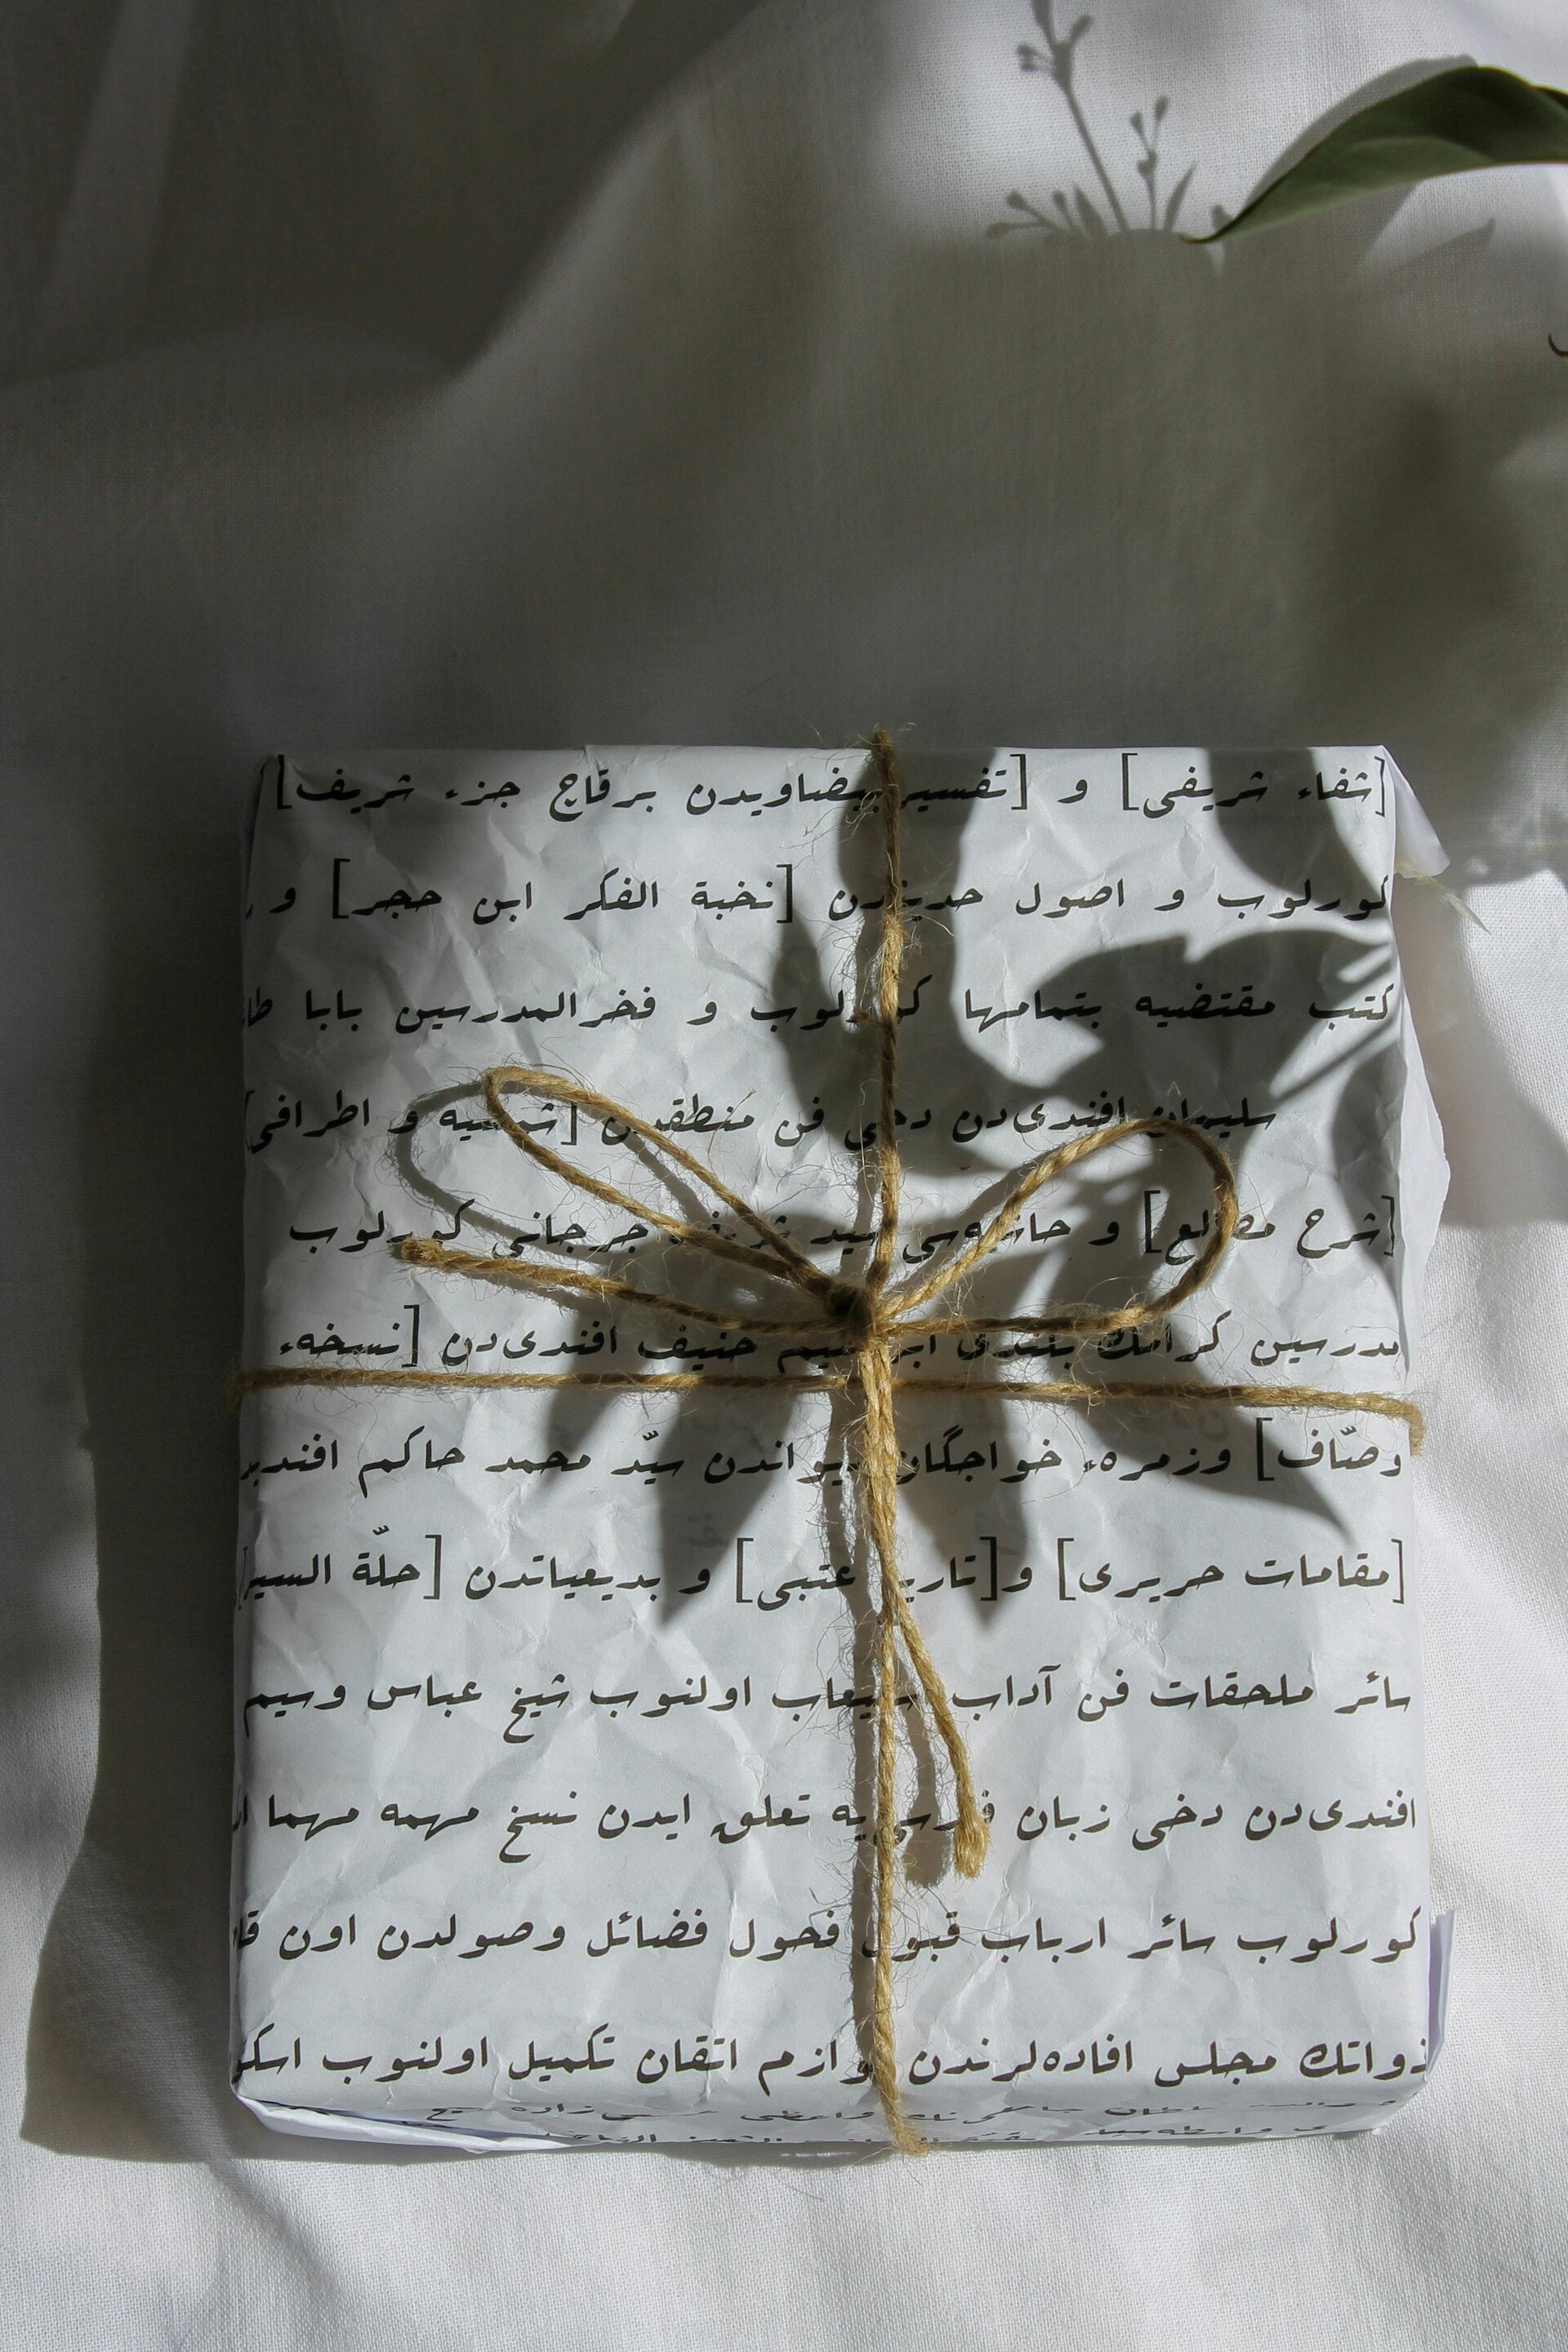 [شفاء شريفى] و [تفسير بيضاويدن برقاچ جزء شريف]
كورلوب و اصول حديثدن [نخبة الفكر ابن حجر] و
كتب مقتضيه بتمامها كورلوب و فخرالمدرسين بابا
سليمان افندى‌دن دخى فن منطقدن [شمسيه و اطرافى]
[شرح مطالع] و حاشيه‌سى سيد شريف جرجانى كورلوب
مدرسين كرامك بلندى ابراهيم حنيف افندى‌دن [نسخهء
وصّاف] وزمرهء خواجگان ديواندن سيّد محمد حاكم
[مقامات حريرى] و[تاريخ عتبى] و بديعياتدن [حلّة السيرا]
سائر ملحقات فن آداب استيعاب اولنوب شيخ عباس وسيم
افندى‌دن دخى زبان فارسى‌يه تعلق ايدن نسخ مهمه مهما
كورلوب سائر ارباب قبول فحول فضائل وصولدن اون
ذواتك مجلس افاده‌لرندن لوازم اتقان تكميل اولنوب